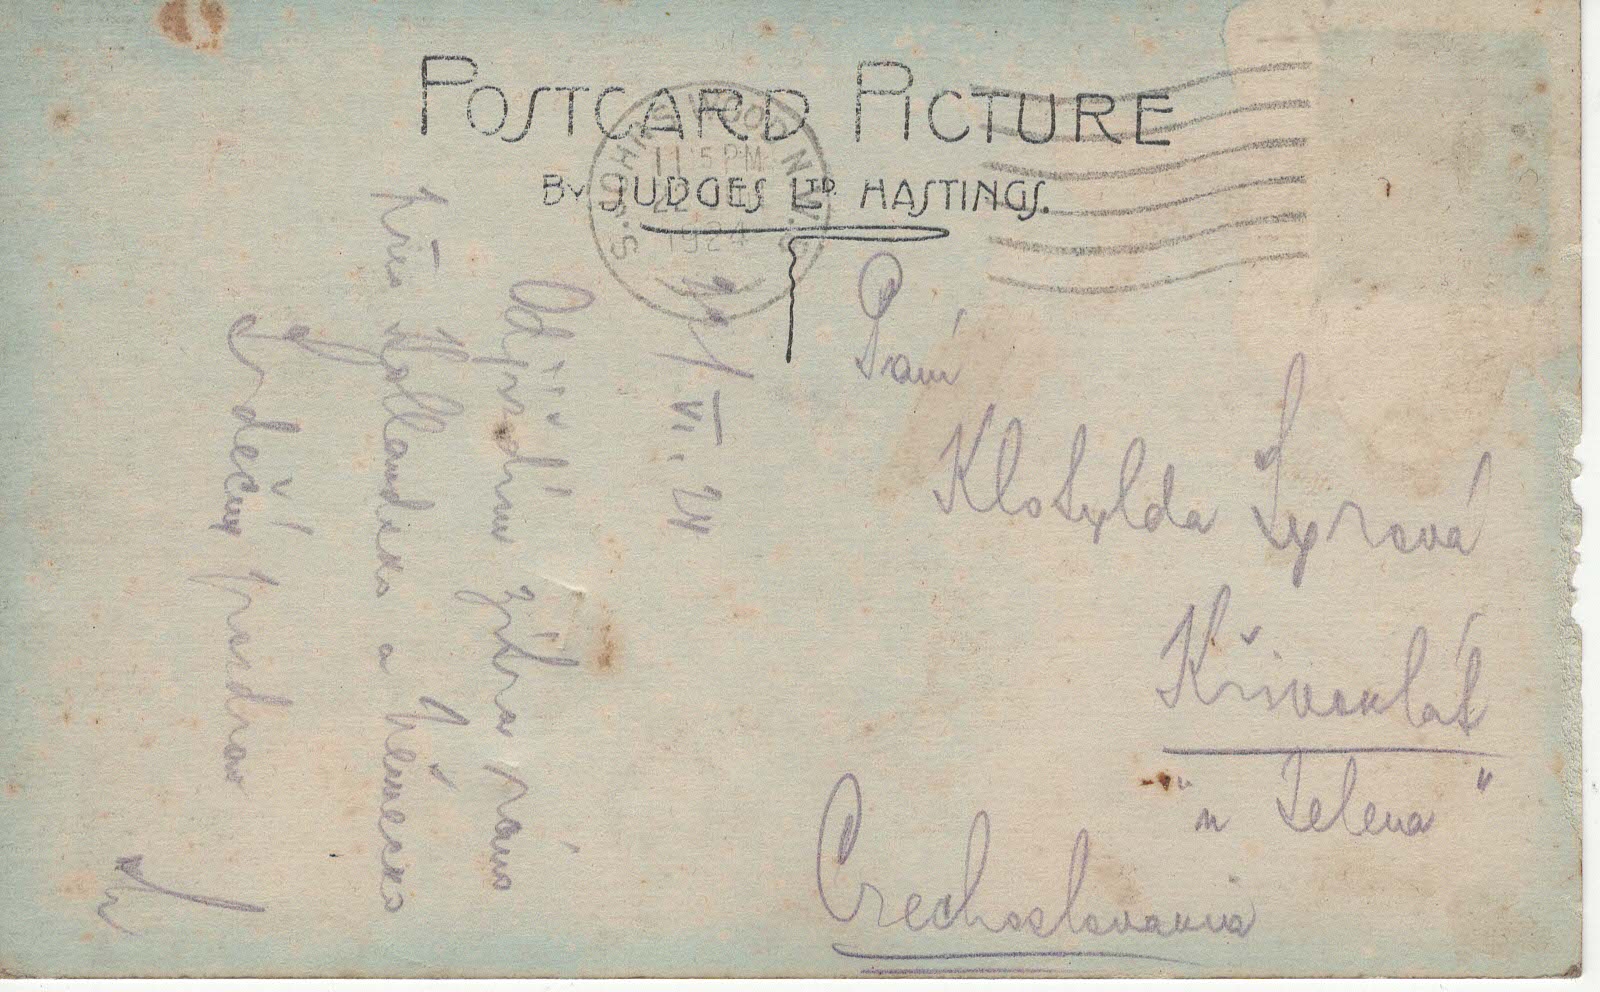 POSTCARD PICTURE
BY JUDGES LTD. HASTINGS.
JOHN'S WOOD N.W.8
PM
22
1924
VI. 24
Odjíždím zítra ráno
přes Hollandsko a Německo
Srdečný pozdrav
Paní
Klotylda Syrová
Křivoklát
"u Jelena"
Czechoslovakia